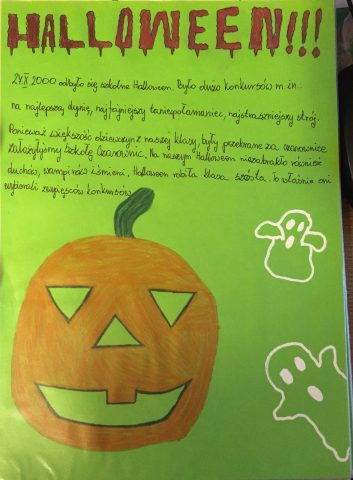 HALLOWEEN!!!
24.X 2000 odbyło się szkolne Halloween. Było dużo konkursów m.in.:
na najlepszą dynię, najfajniejszy taniec połamaniec, najstraszniejszy strój.
Ponieważ większość dziewczyn z naszej klasy, były przebrane za czarownice
założyłyśmy Szkołę Czarownic. Na naszym Halloween nie zabrakło również
duchów, wampirów i śmierci. Halloween robiła klasa szósta. To właśnie oni
wybierali zwycięsców konkursów.